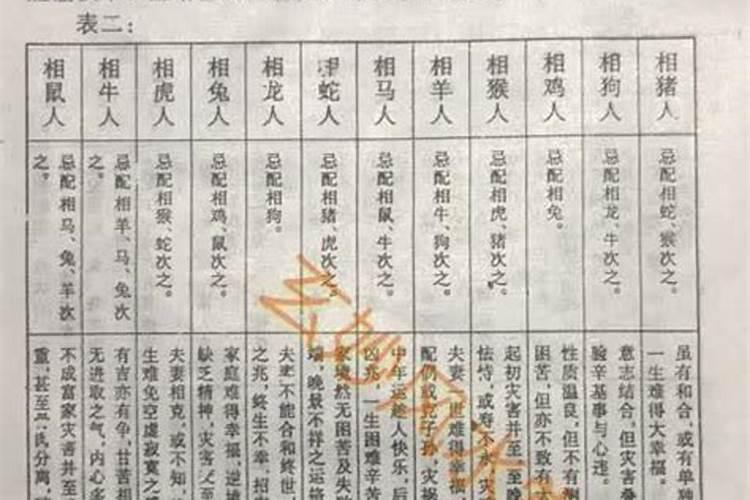 表二：
相鼠人
相牛人
相虎人
相兔人
相龙人
相蛇人
相马人
相羊人
相猴人
相鸡人
相狗人
相猪人
忌配相马、兔、羊次
之。
忌配相羊、马、兔次
之。
忌配相猴、蛇次之。
忌配相鸡、鼠次之。
忌配相狗。
忌配相猪、虎次之。
忌配相鼠、牛次之。
忌配相牛、狗次之。
忌配相虎、猪次之。
忌配相兔。
忌配相龙、牛次之。
忌配相蛇、猴次之。
不成富家灾害并至
重，甚至 分离，
有吉亦有争，甘苦相
无进取之气，内心多
夫妻相克，或不知，
生难免空虚寂寞之
家庭难得幸福，逆境
缺乏精神，灾害 至
夫妻不能合和终世，
之兆，终生不幸，招
家 然无困苦及失败
端，晚景不祥之运路
中年运途人快乐，后
凶兆，一生困难辛苦
夫妻一世难得幸福
配偶或克子孙，灾祸
起初灾害并至至晚
怙恃，或寿不永，灾
性质温良，但不有耐
困苦，但亦不致有
意志结合，但灾害
验辛基事与心违。
虽有和合，或有单独
一生难得大幸福。
玄妙风水